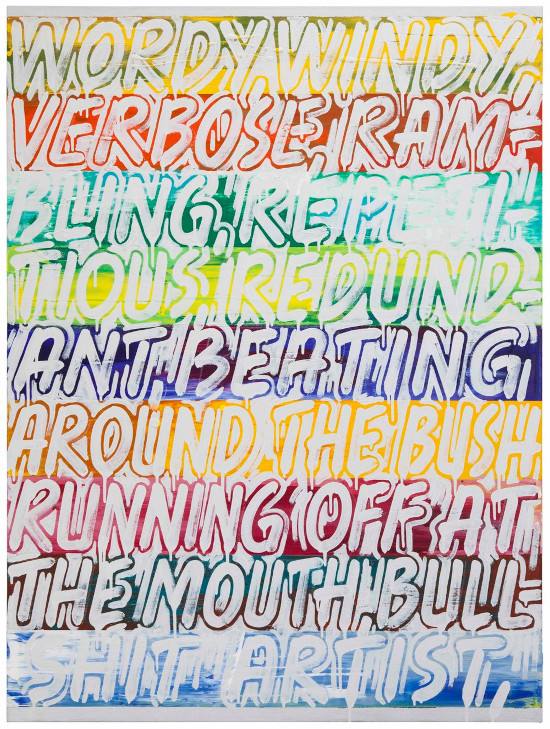 WORDY, WINDY,
VERBOSE, RAM-
BLING, REPETI-
TIOUS, REDUND-
ANT, BEATING
AROUND THE BUSH
RUNNING OFF AT
THE MOUTH, BULL-
SHIT ARTIST,